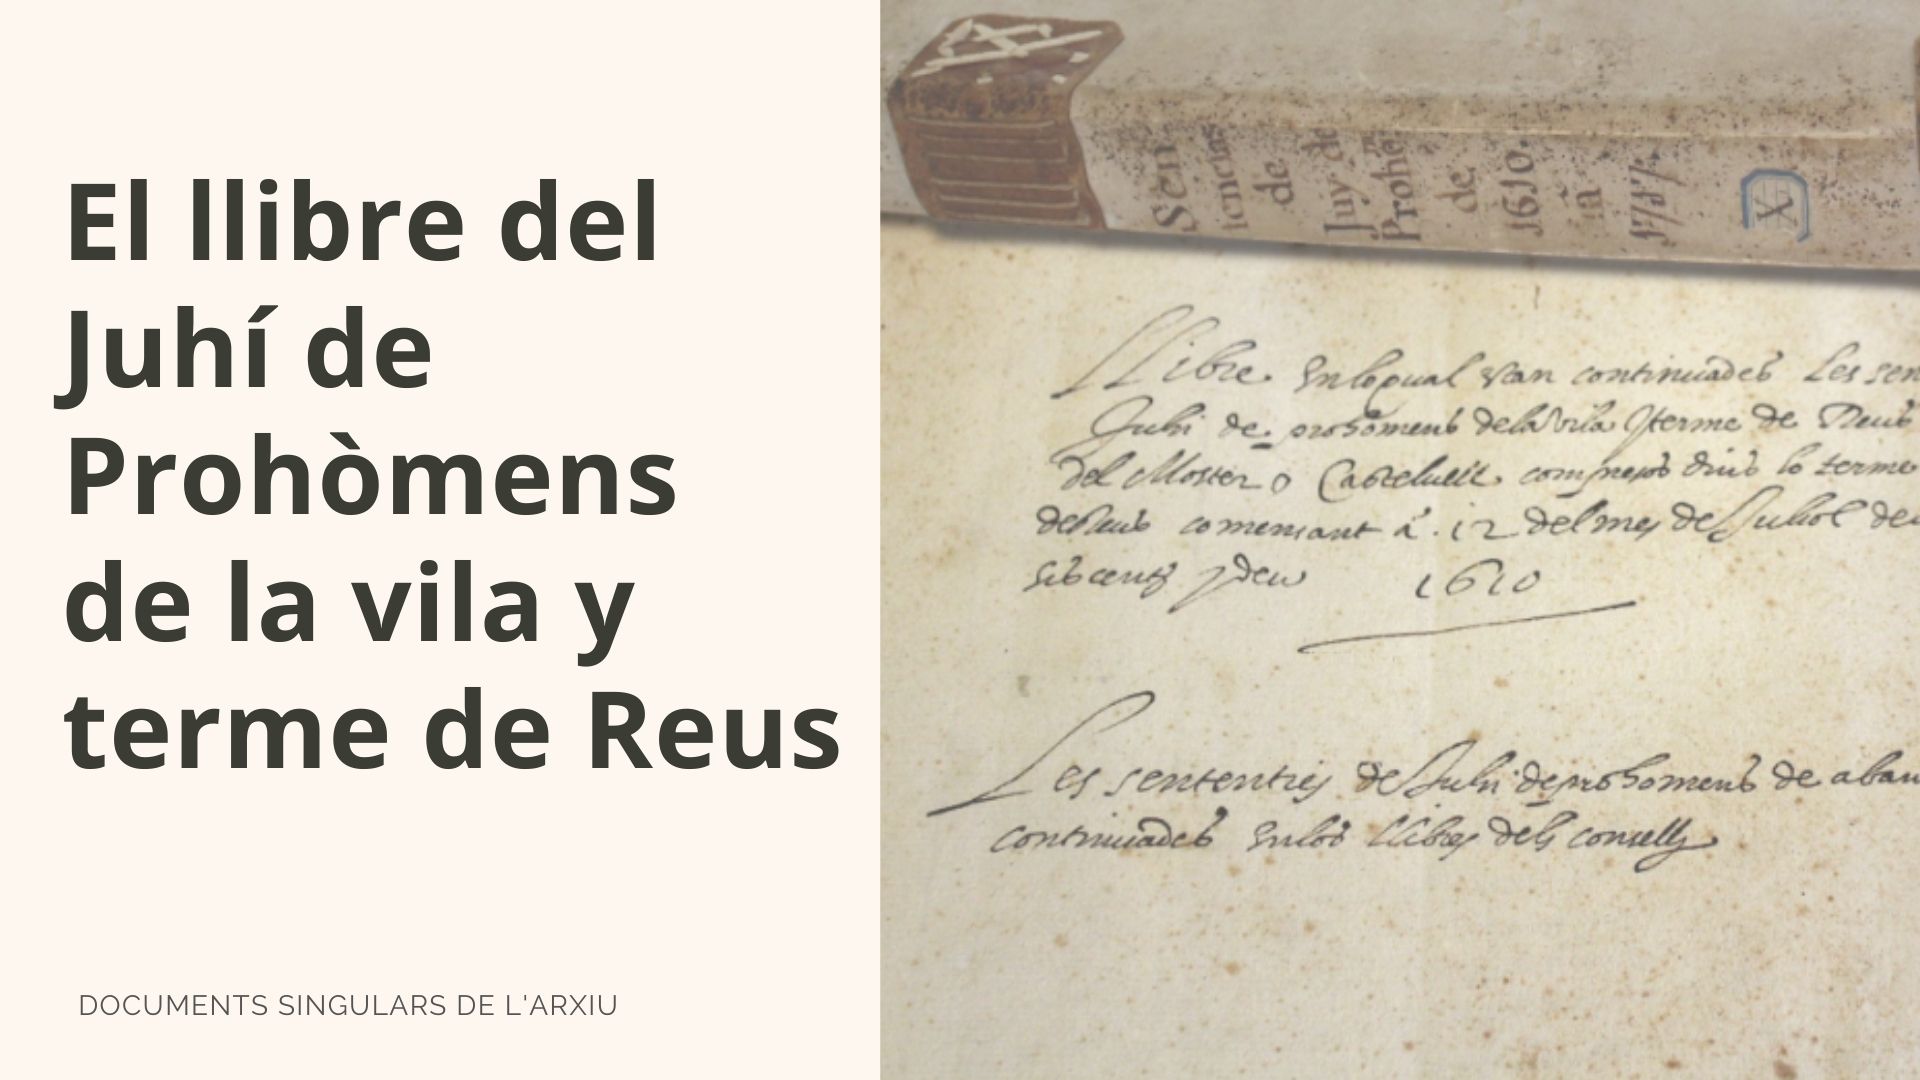 El llibre del
Juhí de
Prohòmens
de la vila y
terme de Reus
DOCUMENTS SINGULARS DE L'ARXIU
Sen
tencias
de
Juy de
Prohens
de
1610.
a
1717.
X
Llibre Enloqual van continuades Les sen
Juhi de prohomens dela vila y terme de Reus
del Moster o Castelvell compresos dins lo terme
de Reus comensant a .12 del mes de Juliol de
siscents y deu 1610
Les sententies de Juhi de prohomens de aban
continuades Enlos llibres dels consells